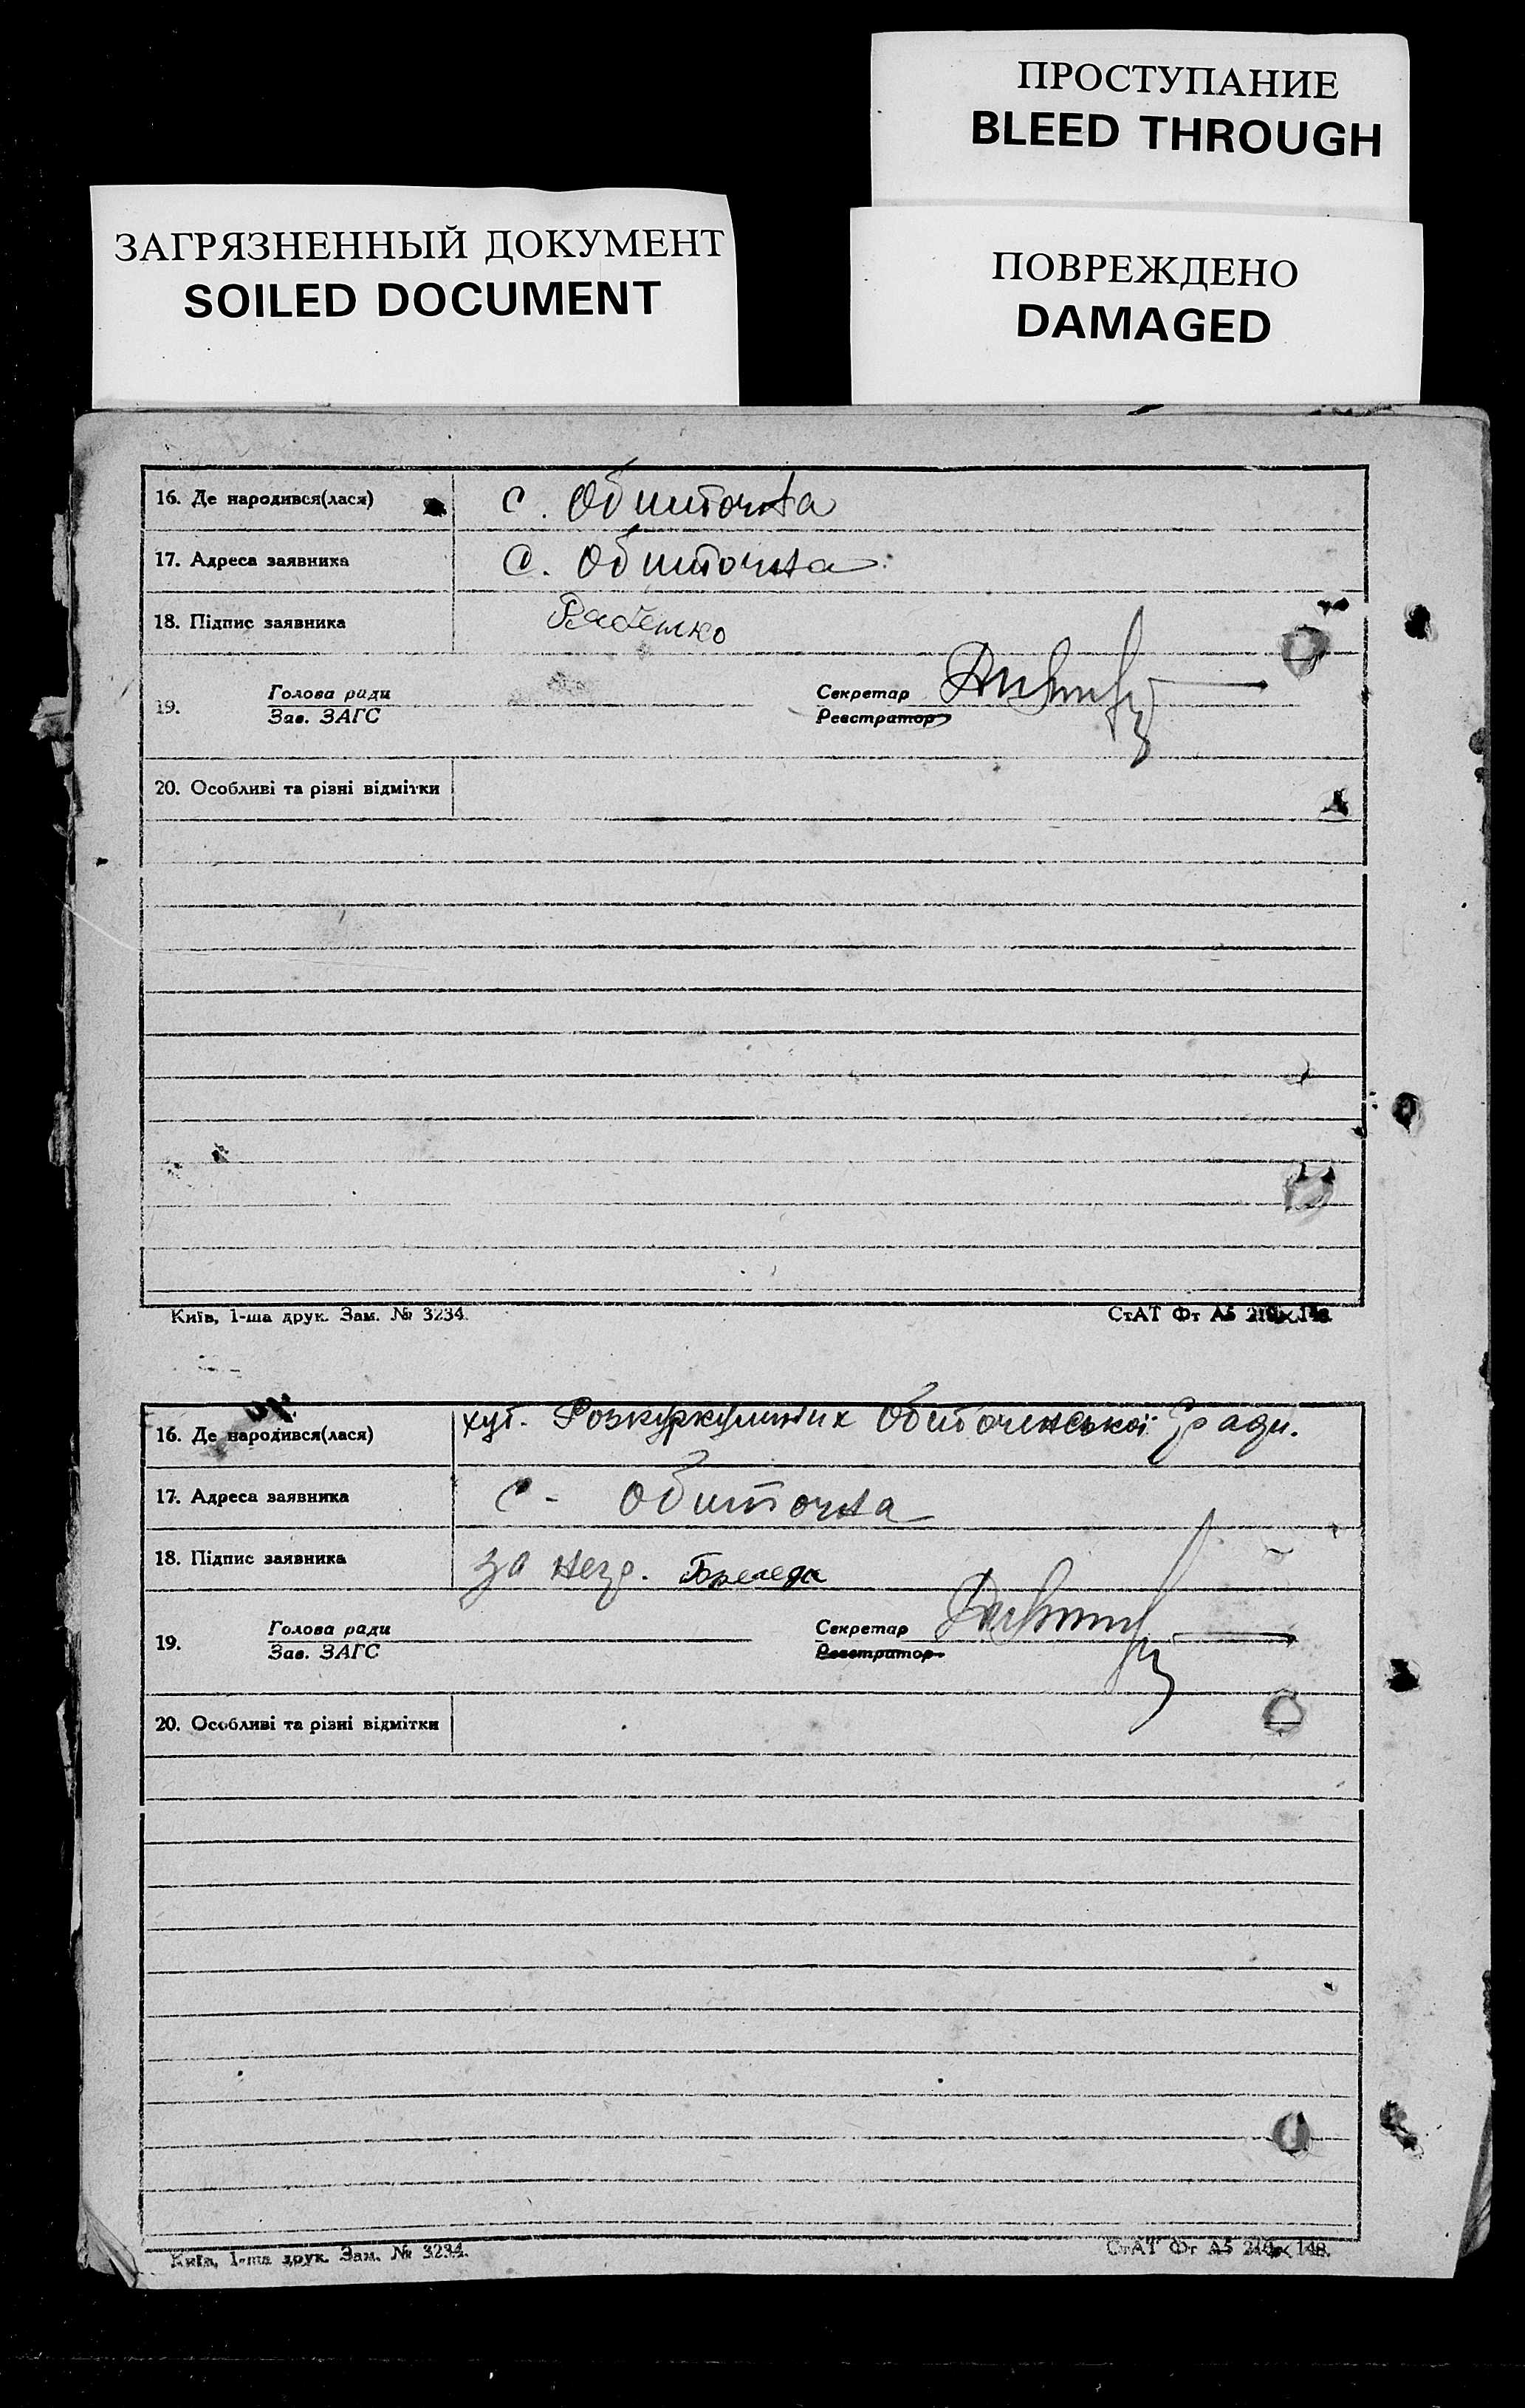 ПРОСТУПАНИЕ
BLEED THROUGH
ЗАГРЯЗНЕННЫЙ ДОКУМЕНТ
SOILED DOCUMENT
ПОВРЕЖДЕНО
DAMAGED
16. Де народився(лася) с. Обиточна
17. Адреса заявника с. Обиточна
18. Підпис заявника
19. Голова ради Секретар
Зав. ЗАГС Реєстратор
20. Особливі та різні відмітки
Київ, 1-ша друк. Зам. № 3234. СтАТ Фт А5 210×148.
16. Де народився(лася) хут. Розкуркулених Обиточенської ради.
17. Адреса заявника с. Обиточна
18. Підпис заявника за негр.
19. Голова ради Секретар
Зав. ЗАГС Реєстратор
20. Особливі та різні відмітки
Київ, 1-ша друк. Зам. № 3234. СтАТ Фт А5 210×148.